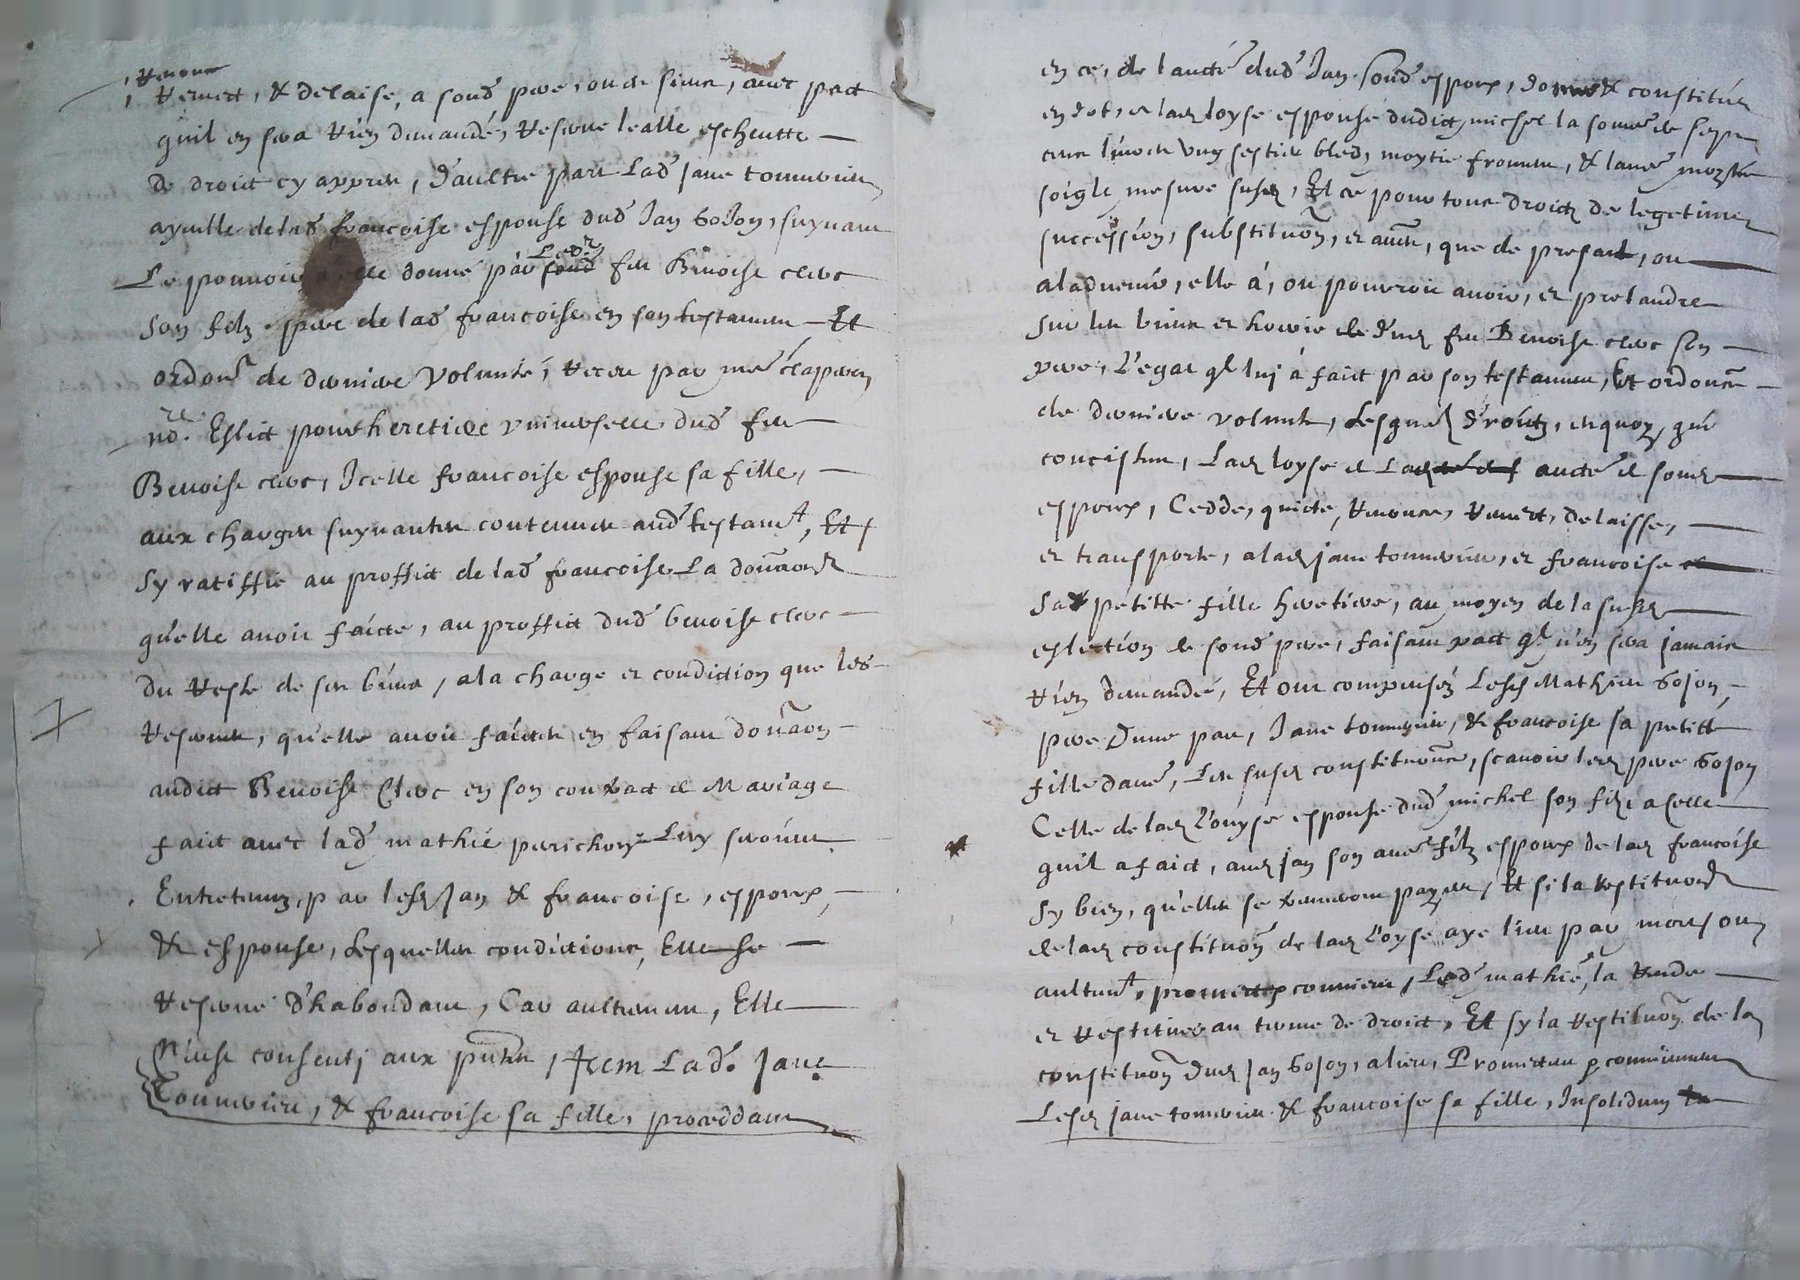 Renonce
Remect, & delaise, a sond pere, ou es siens, avec pact
quil en sera rien demandé, reserve lealle escheutte
de droict cy appres, d'aultre part lad Jane
ayeulle de lad francoise espouse dud Jan Gojon, suyvant
Le pouvoir a elle donné par sond led.r feu Benoist clerc
son filz pere de lad francoise en son testament Et
ordon.e de derniere volunté, receu par me
no.re Eslict pour heretiere universelle dud feu
Benoist clerc, Icelle francoise espouse sa fille,
aux charges suyvantes contenues aud testam.t, Et
sy ratiffie au proffict de lad francoise La donãon
qu'elle avoit faicte, au proffict dud benoist clerc
du reste de ses biens, a la charge et condiction que les
reserves, qu'elle avoit faictes en faisant donãon
audict Benoist Clerc en son contract de Mariage
faict avec lad mathie perichon Luy seront
Entretenuz, par lesd Jan & francoise, espoux,
& espouse, Lesquelles condictions, Elle se
reserve d'habondant, Car aultrement, Elle
N'eust consenti aux pñtes, Item Lad. Jane
& francoise sa fille, proceddant
en ce, de laucté dud Jan sond espoux, donne & constitue
en dot, a lad loyse espouse dudict michel la somme de sept
cens livres ung sestier bled, moytie froment, & l'aue moytie
soigle mesure susd, Et ce pour tous droictz de legetimes
succession, substituõn, et autres, que de presant, ou
a ladvenir, elle à, ou pouvroit avoir, et pretandre
sur les biens et hoirie dud feu Benoist clerc son
pere, Legat q.l luj à faict par son testament, Et ordonan
de derniere volunté, Lesquelz droictz, en quoy qui
concistent, Lad loyse de aucté de sond
espoux, Cedde, quicte, renonce, remect, delaisse,
et transporte, a lad jane, et francoise
sa petitte fille heretiere, au moyen de la susd
eslection de sond pere, faisant pact q.l n'en sera jamais
rien demandé, Et ont compensé Lesd Mathieu Gojon
pere dune part, Jane & francoise sa petitte
fille daue, Les susd constitutions, scavoir led pere Gojon
Celle de lad Loyse espouse dud michel son filz a celle
quil a faict, aud jan son aue filz espoux de lad francoise
sy bien, qu'elles se treuvent payees, Et si la restituõn
de lad constituõn de lad Loyse aye lieu par mort ou
aultrem.t, promect comme Led mathie, la rendre
et restituer au terme de droict, Et sy la restituõn de la
constituõn dud Jan Gojon, a lieu, Promettent
Lesd jane & francoise sa fille, Insolidum